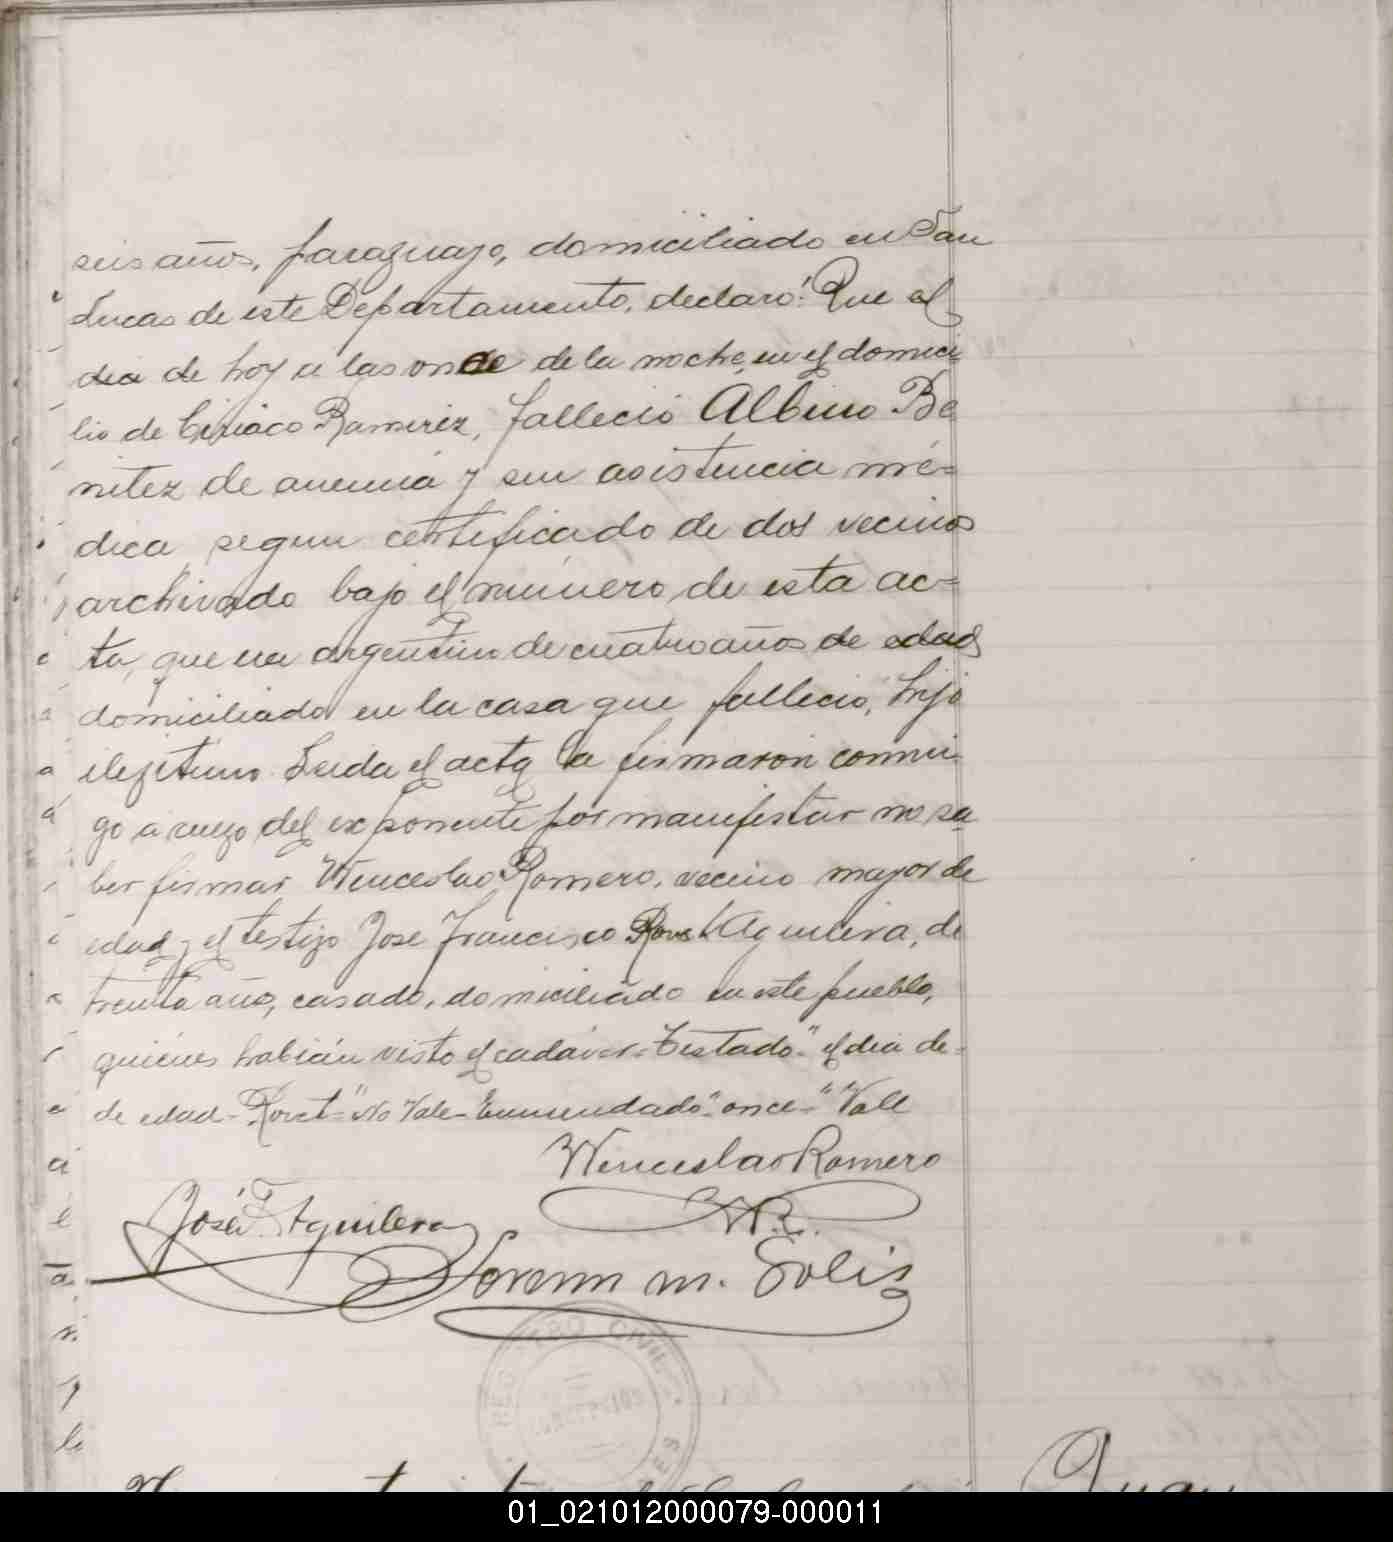 seis años, paraguayo, domiciliado en San
Lucas de este Departamento, declaró: Que el
dia de hoy a las once de la noche, en el domici-
lio de Ciriaco Ramirez, falleció Albino Be
nitez de anemia y sin asistencia mé-
dica segun certificado de dos vecinos
archivado bajo el número de esta ac-
ta, que era argentino de cuatro años de edad
domiciliado en la casa que falleció, hijo
ilegitimo. Leida el acta la firmaron conmi
go a ruego del exponente por manifestar no sa
ber firmar Wenceslao Romero, vecino mayor de
edad y el testigo José Francisco Rovet Aguilera, de
treinta años, casado, domiciliado en este pueblo,
quienes habián visto el cadáver. Testado." el dia de-
de edad- Rovet" No Vale- Enmendado". once-" Vale
Wenceslao Romero
José F. Aguilera
W.R.
Lorenzo M. Solis
REGISTRO CIVIL
01_021012000079-000011